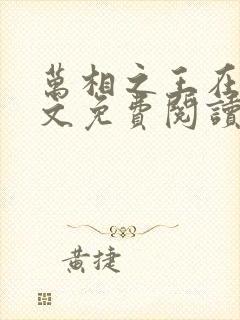 萬相之王在
文免費閱讀
黃捷